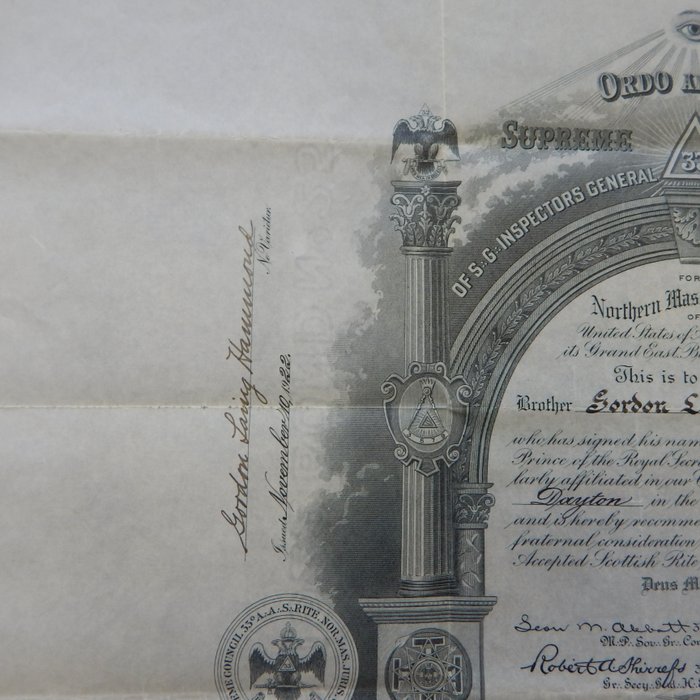 ORDO A
SUPREME
33
OF S∴G∴INSPECTORS GENERAL
FOR
Northern Mas
OF
United States of
its Grand East, B
This is to
Brother Gordon L
who has signed his nam
Prince of the Royal Secre
larly affiliated in our
Dayton in the
and is hereby recomme
fraternal consideration
Accepted Scottish Rite
Deus M
Leon M. Abbott
M.P. Sov. Gr. Co
Robert A Shirrefs
Gr. Secy. Gen. H.
Gordon Laing Hammond
Ne Varietur.
Issued November 10, 1922.
COUNCIL 33° A.A.S. RITE NOR. MAS. JURIS.